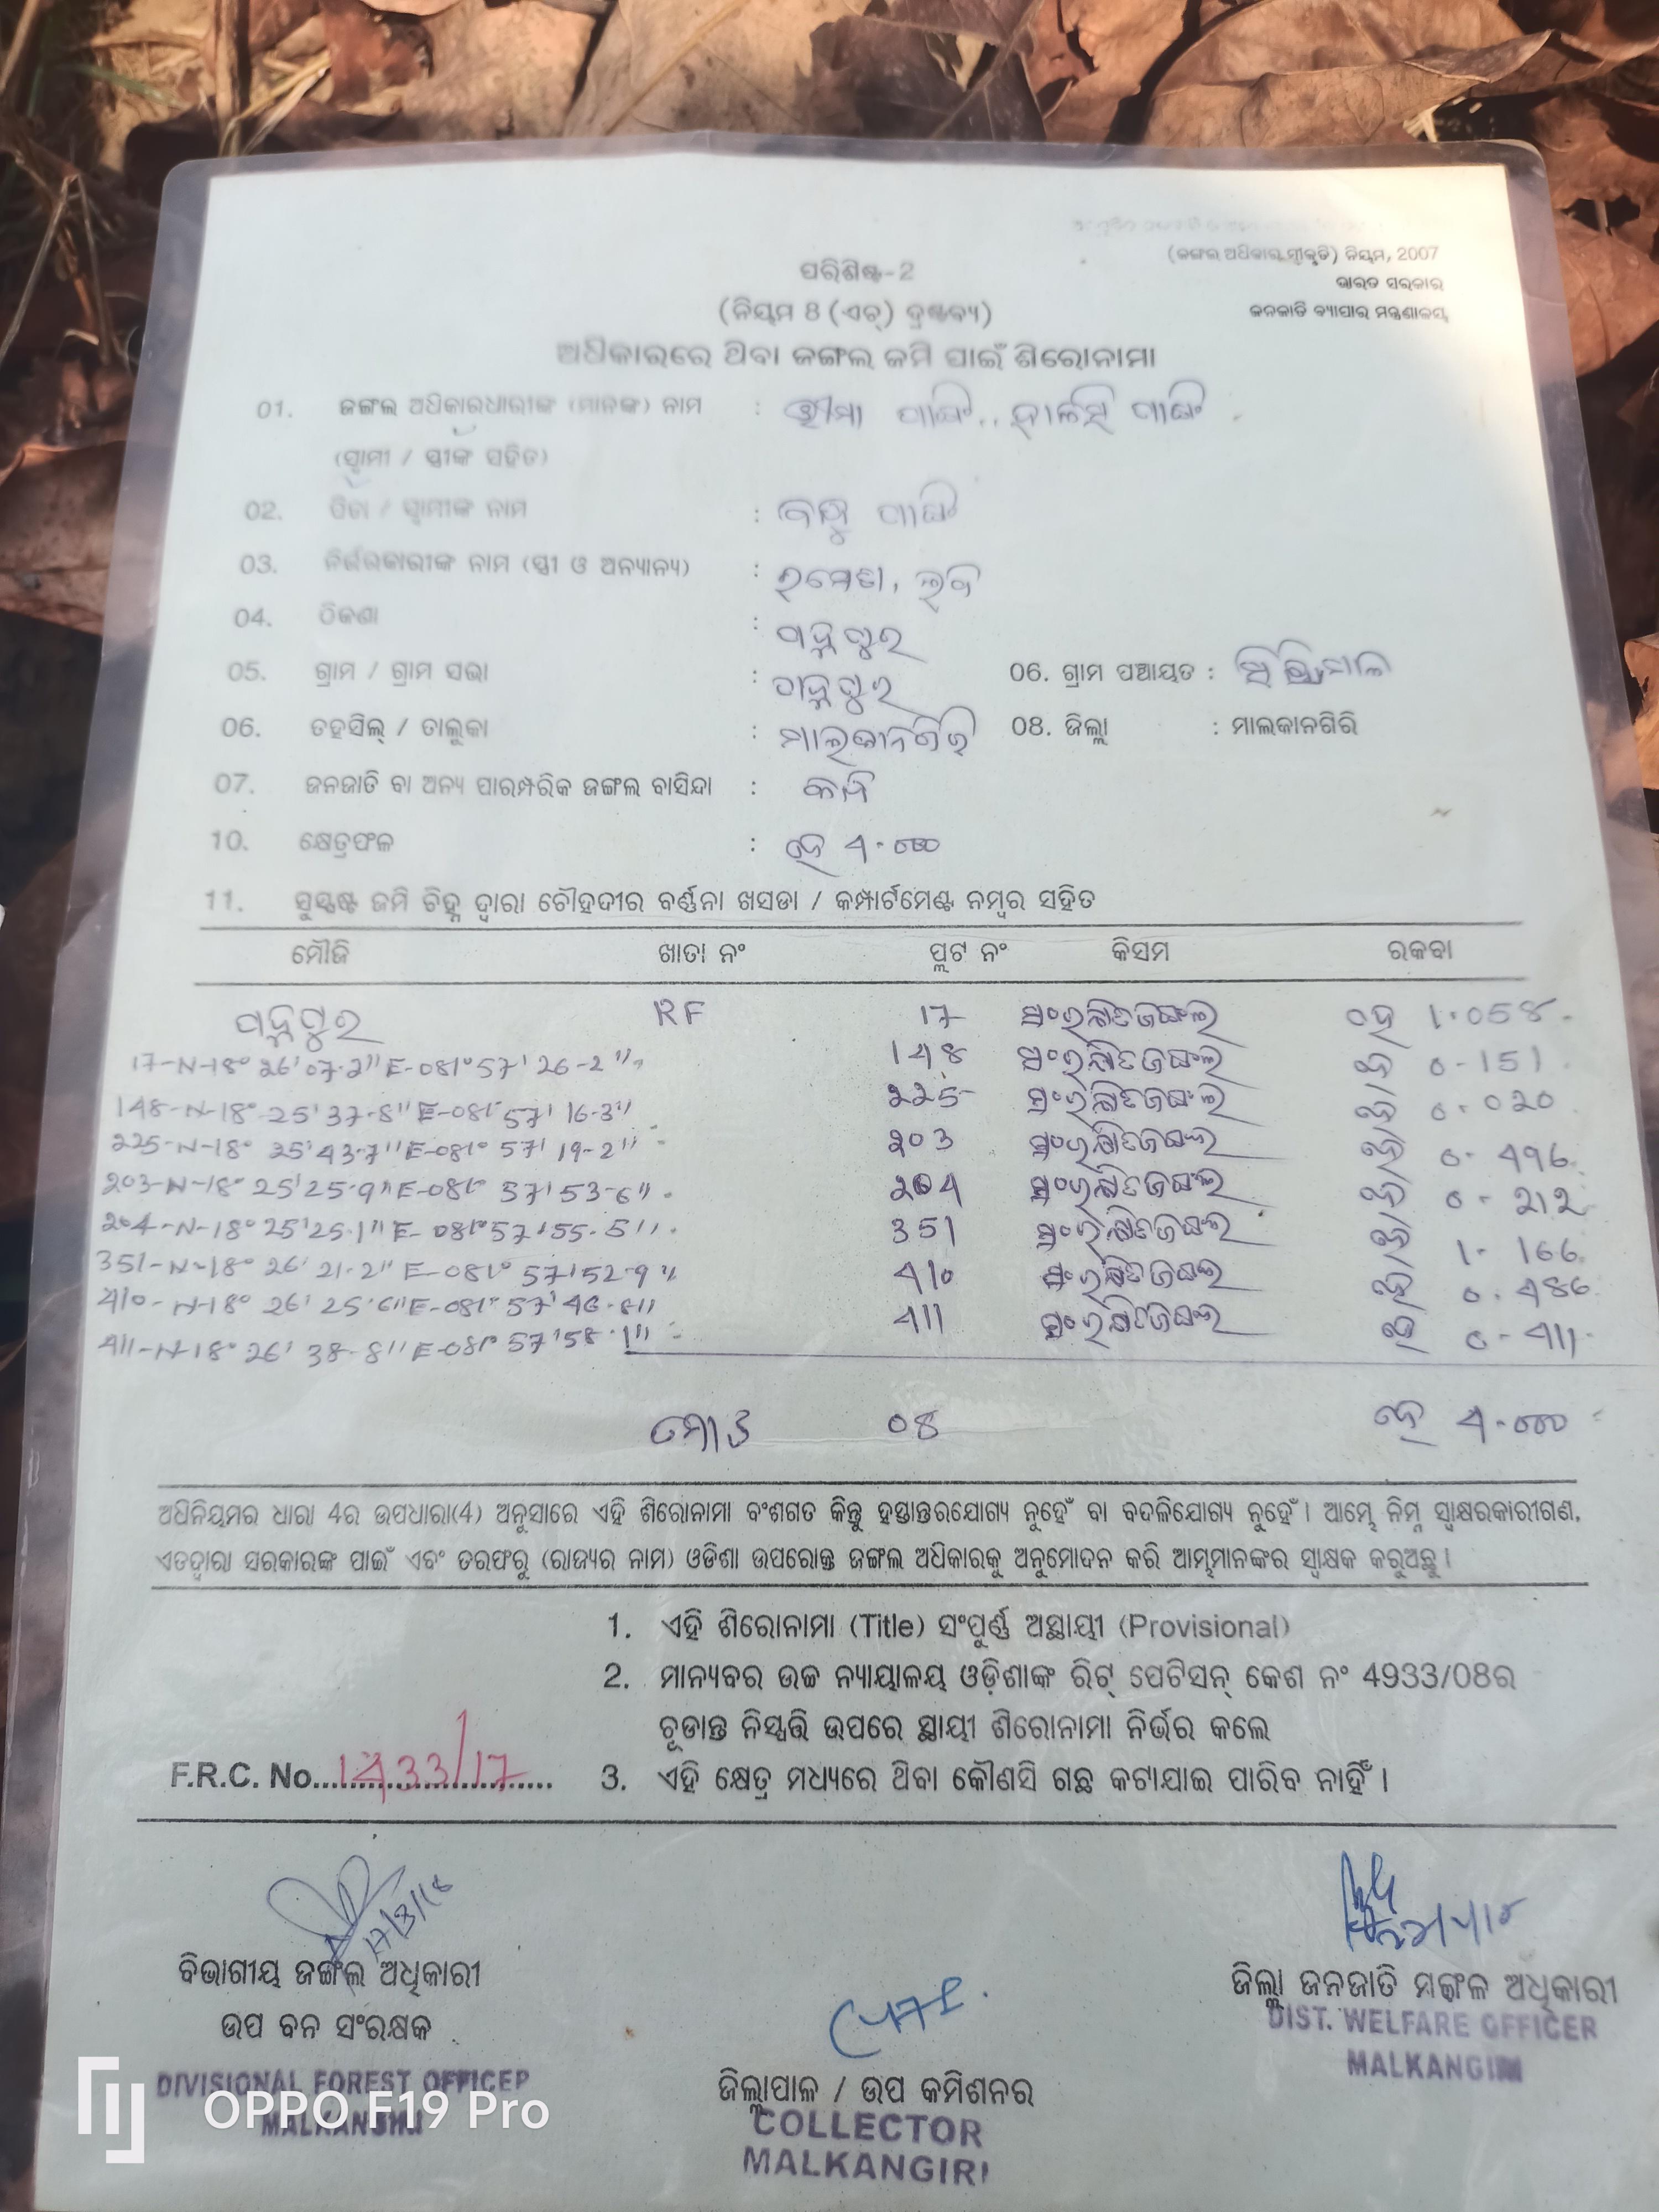 (ଜଙ୍ଗଲ ଅଧିକାର ସ୍ୱୀକୃତି) ନିୟମ, 2007
ଭାରତ ସରକାର
ଜନଜାତି ବ୍ୟାପାର ମନ୍ତ୍ରଣାଳୟ
ପରିଶିଷ୍ଟ-2
(ନିୟମ 8 (ଏଚ୍) ଦ୍ରଷ୍ଟବ୍ୟ)
ଅଧିକାରରେ ଥିବା ଜଙ୍ଗଲ ଜମି ପାଇଁ ଶିରୋନାମା
01. ଜଙ୍ଗଲ ଅଧିକାରଧାରୀଙ୍କ (ମାନଙ୍କ) ନାମ :
(ସ୍ୱାମୀ / ସ୍ତ୍ରୀଙ୍କ ସହିତ)
02. ପିତା / ସ୍ୱାମୀଙ୍କ ନାମ :
03. ନିର୍ଭରକାରୀଙ୍କ ନାମ (ସ୍ତ୍ରୀ ଓ ଅନ୍ୟାନ୍ୟ) :
04. ଠିକଣା :
05. ଗ୍ରାମ / ଗ୍ରାମ ସଭା : 06. ଗ୍ରାମ ପଞ୍ଚାୟତ :
06. ତହସିଲ୍ / ତାଲୁକା : ମାଲକାନଗିରି 08. ଜିଲ୍ଲା : ମାଲକାନଗିରି
07. ଜନଜାତି ବା ଅନ୍ୟ ପାରମ୍ପରିକ ଜଙ୍ଗଲ ବାସିନ୍ଦା :
10. କ୍ଷେତ୍ରଫଳ : ହେ 4.000
11. ସୁସ୍ପଷ୍ଟ ଜମି ଚିହ୍ନ ଦ୍ୱାରା ଚୌହଦୀର ବର୍ଣ୍ଣନା ଖସଡା / କମ୍ପାର୍ଟମେଣ୍ଟ ନମ୍ବର ସହିତ
ମୌଜି ଖାତା ନଂ ପ୍ଲଟ ନଂ କିସମ ରକବା
RF 17 ସଂରକ୍ଷିତଜଙ୍ଗଲ ହେ 1.058
17-N-18° 26' 07.2" E-081° 57' 26-2" 148 ସଂରକ୍ଷିତଜଙ୍ଗଲ ହେ 0-151
148-N-18° 25' 37-8" E-081° 57' 16-3" 225 ସଂରକ୍ଷିତଜଙ୍ଗଲ ହେ 0.020
225-N-18° 25' 43-7" E-081° 57' 19-2" 203 ସଂରକ୍ଷିତଜଙ୍ଗଲ ହେ 0-496
203-N-18° 25' 25-9" E-081° 57' 53-6" 204 ସଂରକ୍ଷିତଜଙ୍ଗଲ ହେ 0-212
204-N-18° 25' 25.1" E-081° 57' 55-5" 351 ସଂରକ୍ଷିତଜଙ୍ଗଲ ହେ 1-166
351-N-18° 26' 21-2" E-081° 57' 52-9" 410 ସଂରକ୍ଷିତଜଙ୍ଗଲ ହେ 0.486
410-N-18° 26' 25-6" E-081° 57' 411 ସଂରକ୍ଷିତଜଙ୍ଗଲ ହେ 0-411
411-N-18° 26' 38-8" E-081° 57' 58.1"
ମୋଟ 08 ହେ 4.000
ଅଧିନିୟମର ଧାରା 4ର ଉପଧାରା(4) ଅନୁସାରେ ଏହି ଶିରୋନାମା ବଂଶଗତ କିନ୍ତୁ ହସ୍ତାନ୍ତରଯୋଗ୍ୟ ନୁହେଁ ବା ବଦଳିଯୋଗ୍ୟ ନୁହେଁ। ଆମ୍ଭେ ନିମ୍ନ ସ୍ୱାକ୍ଷରକାରୀଗଣ,
ଏତଦ୍ୱାରା ସରକାରଙ୍କ ପାଇଁ ଏବଂ ତରଫରୁ (ରାଜ୍ୟର ନାମ) ଓଡିଶା ଉପରୋକ୍ତ ଜଙ୍ଗଲ ଅଧିକାରକୁ ଅନୁମୋଦନ କରି ଆମ୍ଭମାନଙ୍କର ସ୍ୱାକ୍ଷକ କରୁଅଛୁ।
1. ଏହି ଶିରୋନାମା (Title) ସଂପୂର୍ଣ୍ଣ ଅସ୍ଥାୟୀ (Provisional)
2. ମାନ୍ୟବର ଉଚ୍ଚ ନ୍ୟାୟାଳୟ ଓଡ଼ିଶାଙ୍କ ରିଟ୍ ପେଟିସନ୍ କେଶ ନଂ 4933/08ର
ଚୂଡାନ୍ତ ନିସ୍ପତ୍ତି ଉପରେ ସ୍ଥାୟୀ ଶିରୋନାମା ନିର୍ଭର କଲେ
F.R.C. No. 1433/17 3. ଏହି କ୍ଷେତ୍ର ମଧ୍ୟରେ ଥିବା କୌଣସି ଗଛ କଟାଯାଇ ପାରିବ ନାହିଁ।
ବିଭାଗୀୟ ଜଙ୍ଗଲ ଅଧିକାରୀ
ଉପ ବନ ସଂରକ୍ଷକ
DIVISIONAL FOREST OFFICER
MALKANGIRI
ଜିଲ୍ଲାପାଳ / ଉପ କମିଶନର
COLLECTOR
MALKANGIRI
ଜିଲ୍ଲା ଜନଜାତି ମଙ୍ଗଳ ଅଧିକାରୀ
DIST. WELFARE OFFICER
MALKANGIRI
OPPO F19 Pro